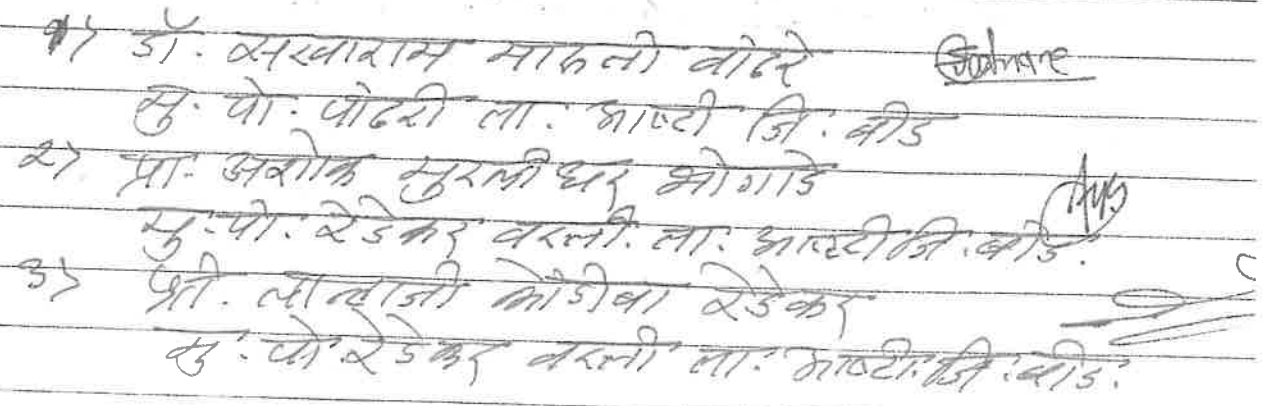 १) डॉ. सखाराम मारुती वांढरे
मु. पो. पोढरी ता. आष्टी जि. बीड
२) प्रा. अशोक मुरलीधर भोगाडे
मु. पो. रेडेकर वस्ती. ता. आष्टी जि. बीड.
३) श्री. तान्हाजी कोंडीबा रेडेकर
मु. पो रेडेकर वस्ती ता. आष्टी. जि. बीड.